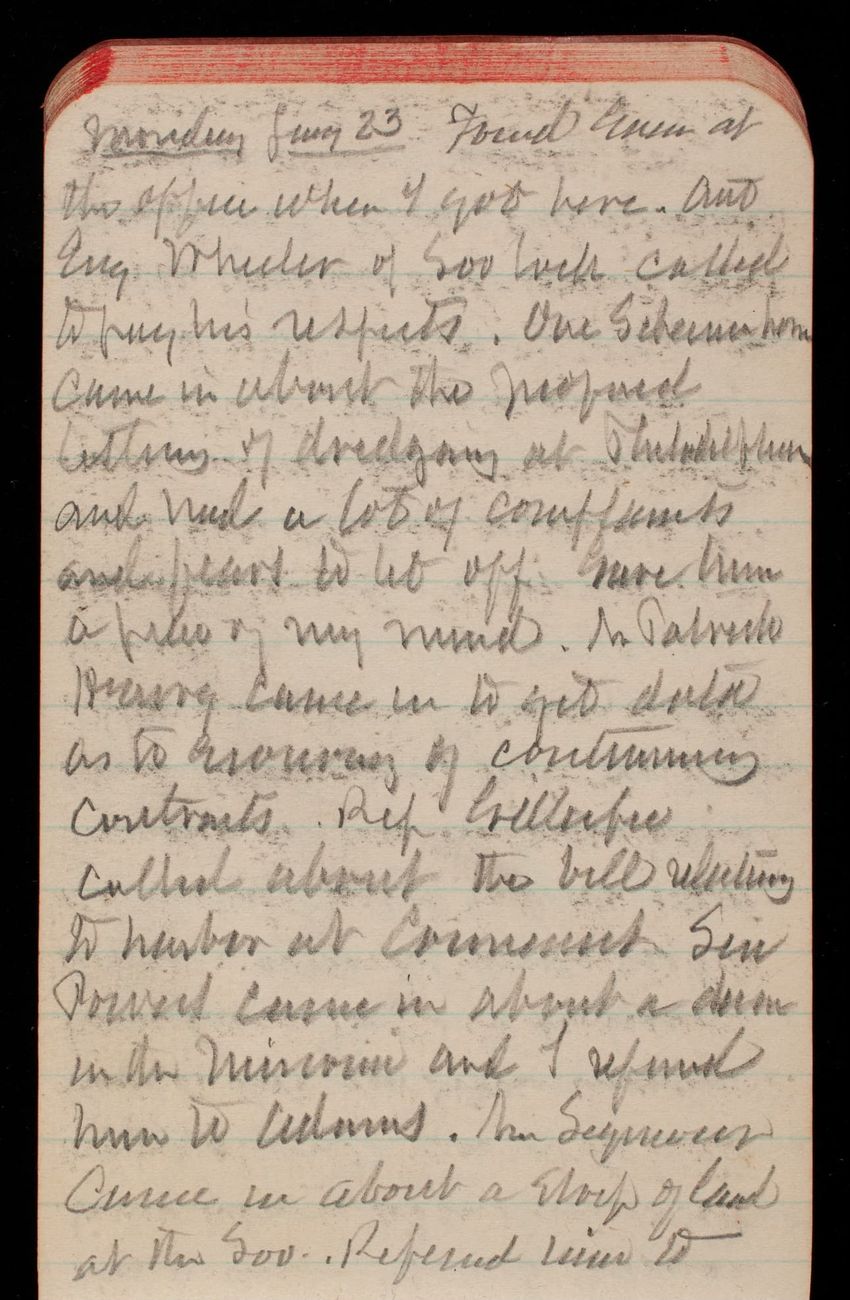 Monday Jany 23 Found Green at
the office when I got here. Ast
Eng Wheeler of Soo Lock called
to pay his respects. One
came in about the proposed
letting of dredging at Philadelphia
and had a lot of complaints
and fears to let off. Gave him
a piece of my mind. Mr
came in to get data
as to of continuing
contracts. Rep Gillespie
called about the bill relating
to harbor at Conneaut Sen
Powers came in about a dam
in the Missouri and I referred
him to Adams. Mr Seymour
Came in about a strip of land
at the Soo. Referred him to